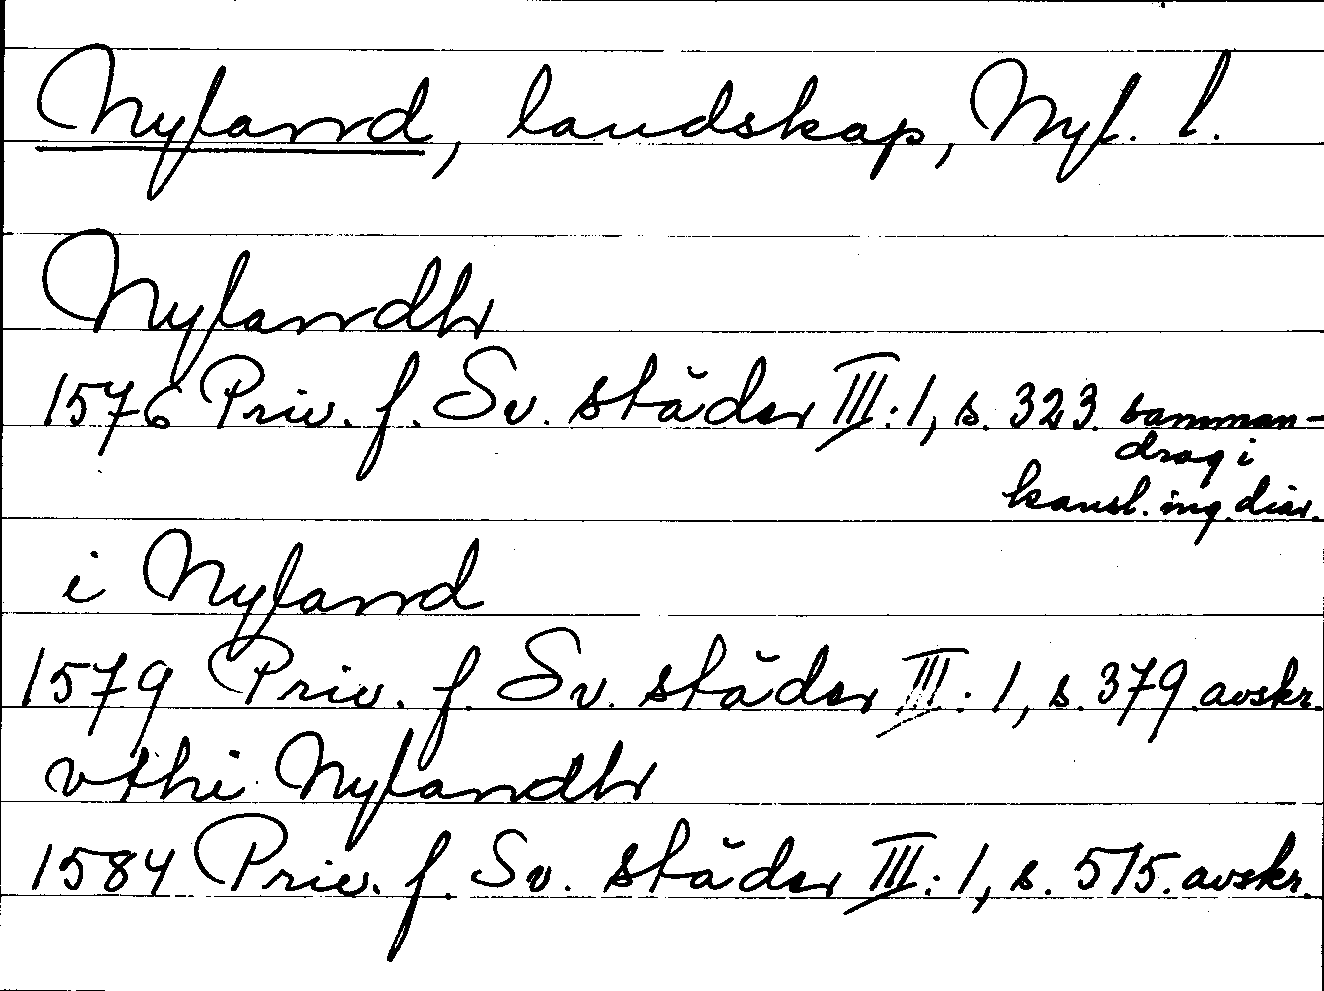 Nyland, landskap, Nyl. l.
Nylandh
1576 Priv. f. Sv. städer III:1, s. 323. samman-
drag i
kansl. ing. diar.
i Nyland
1579 Priv. f. Sv. städer III:1, s. 379. avskr.
vthi Nylandh
1584 Priv. f. Sv. städer III:1, s. 515. avskr.